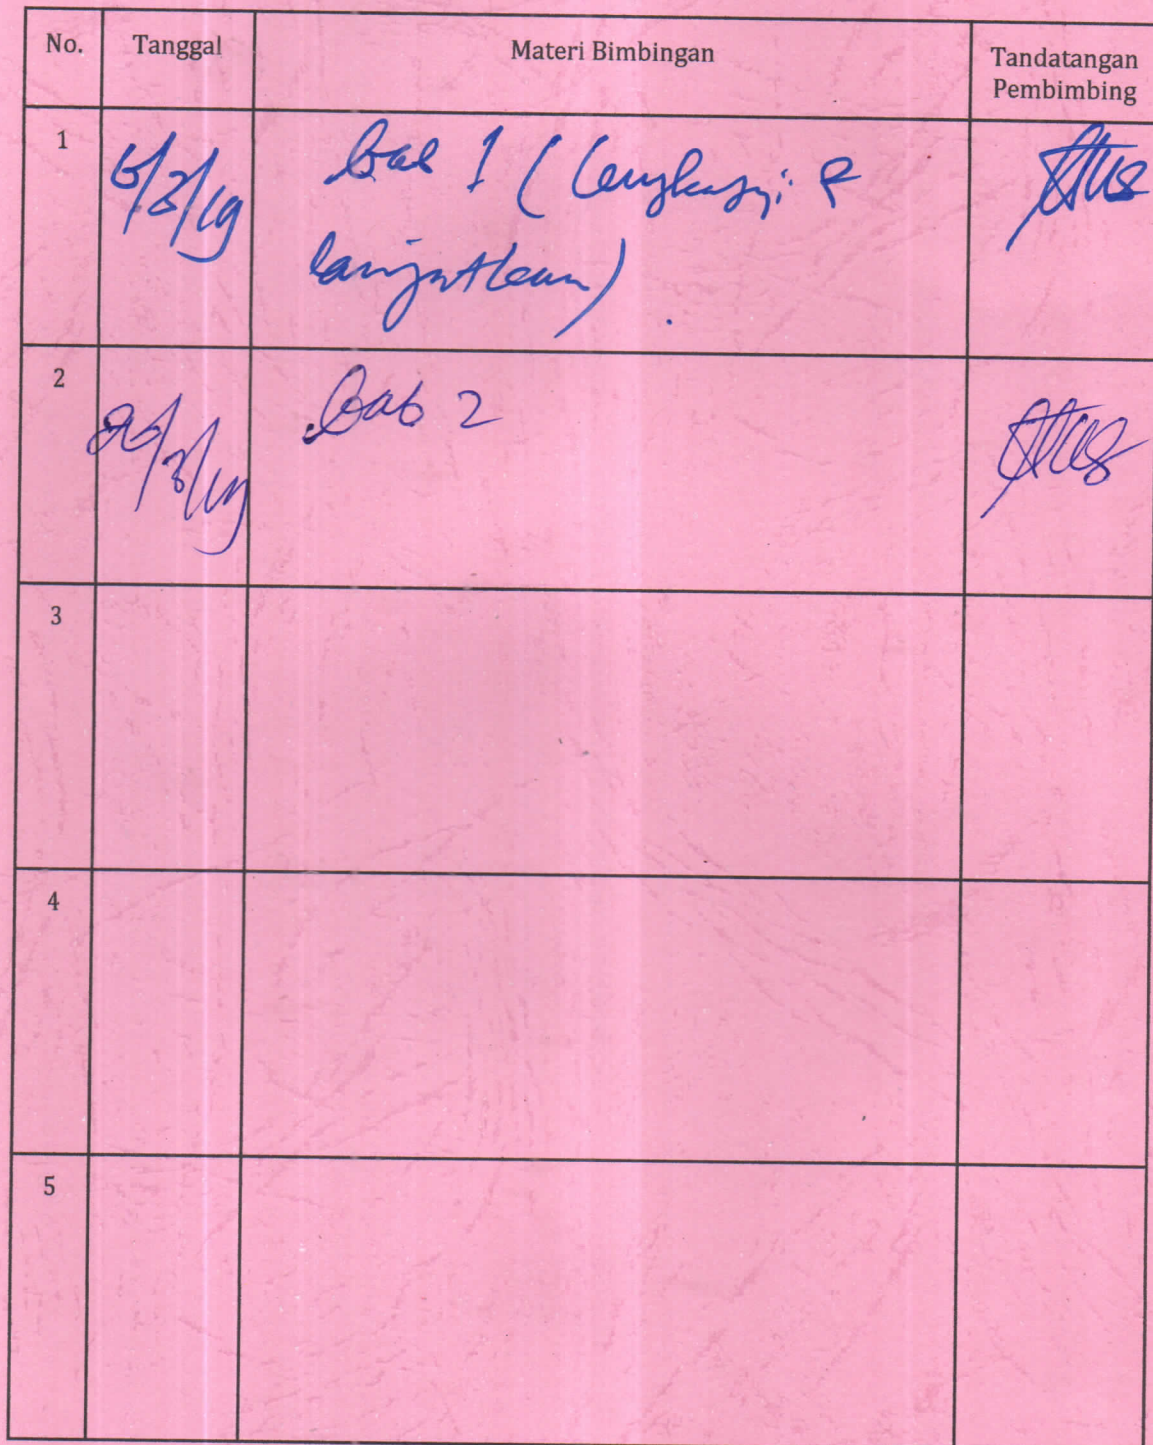 No. Tanggal Materi Bimbingan Tandatangan
Pembimbing
1
bab 1 (lengkapi &
lanjutkan)
2
bab 2
3
4
5